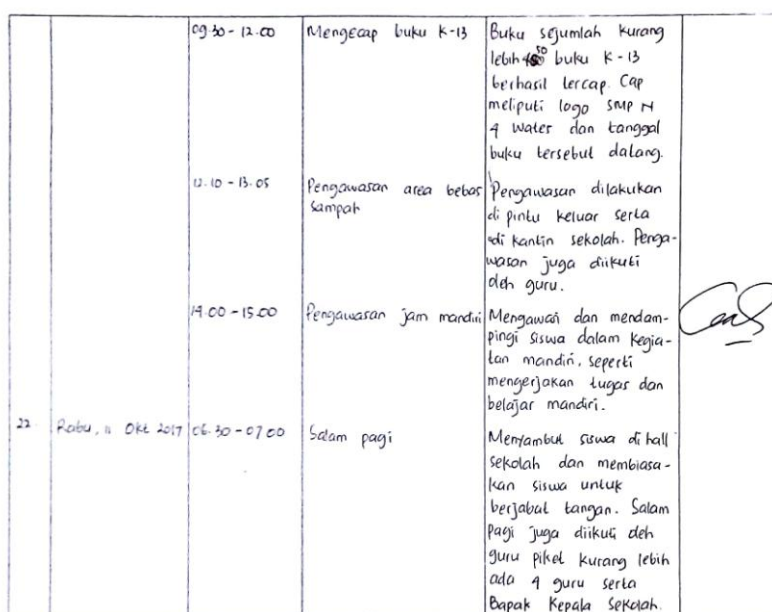 09.30 - 12.00 Mengecap buku K-13 Buku sejumlah kurang
lebih 50 buku K-13
berhasil tercap. Cap
meliputi logo SMP N
4 Wates dan tanggal
buku tersebut datang.
12.10 - 13.05 Pengawasan area bebas Pengawasan dilakukan
sampah di pintu keluar serta
di kantin sekolah. Penga-
wasan juga diikuti
oleh guru.
14.00 - 15.00 Pengawasan jam mandiri Mengawasi dan mendam-
pingi siswa dalam kegia-
tan mandiri, seperti
mengerjakan tugas dan
belajar mandiri.
22. Rabu, 11 Okt 2017 06.30 - 07.00 Salam pagi Menyambut siswa di hall
sekolah dan membiasa-
kan siswa untuk
berjabat tangan. Salam
pagi juga diikuti oleh
guru piket kurang lebih
ada 4 guru serta
Bapak Kepala Sekolah.